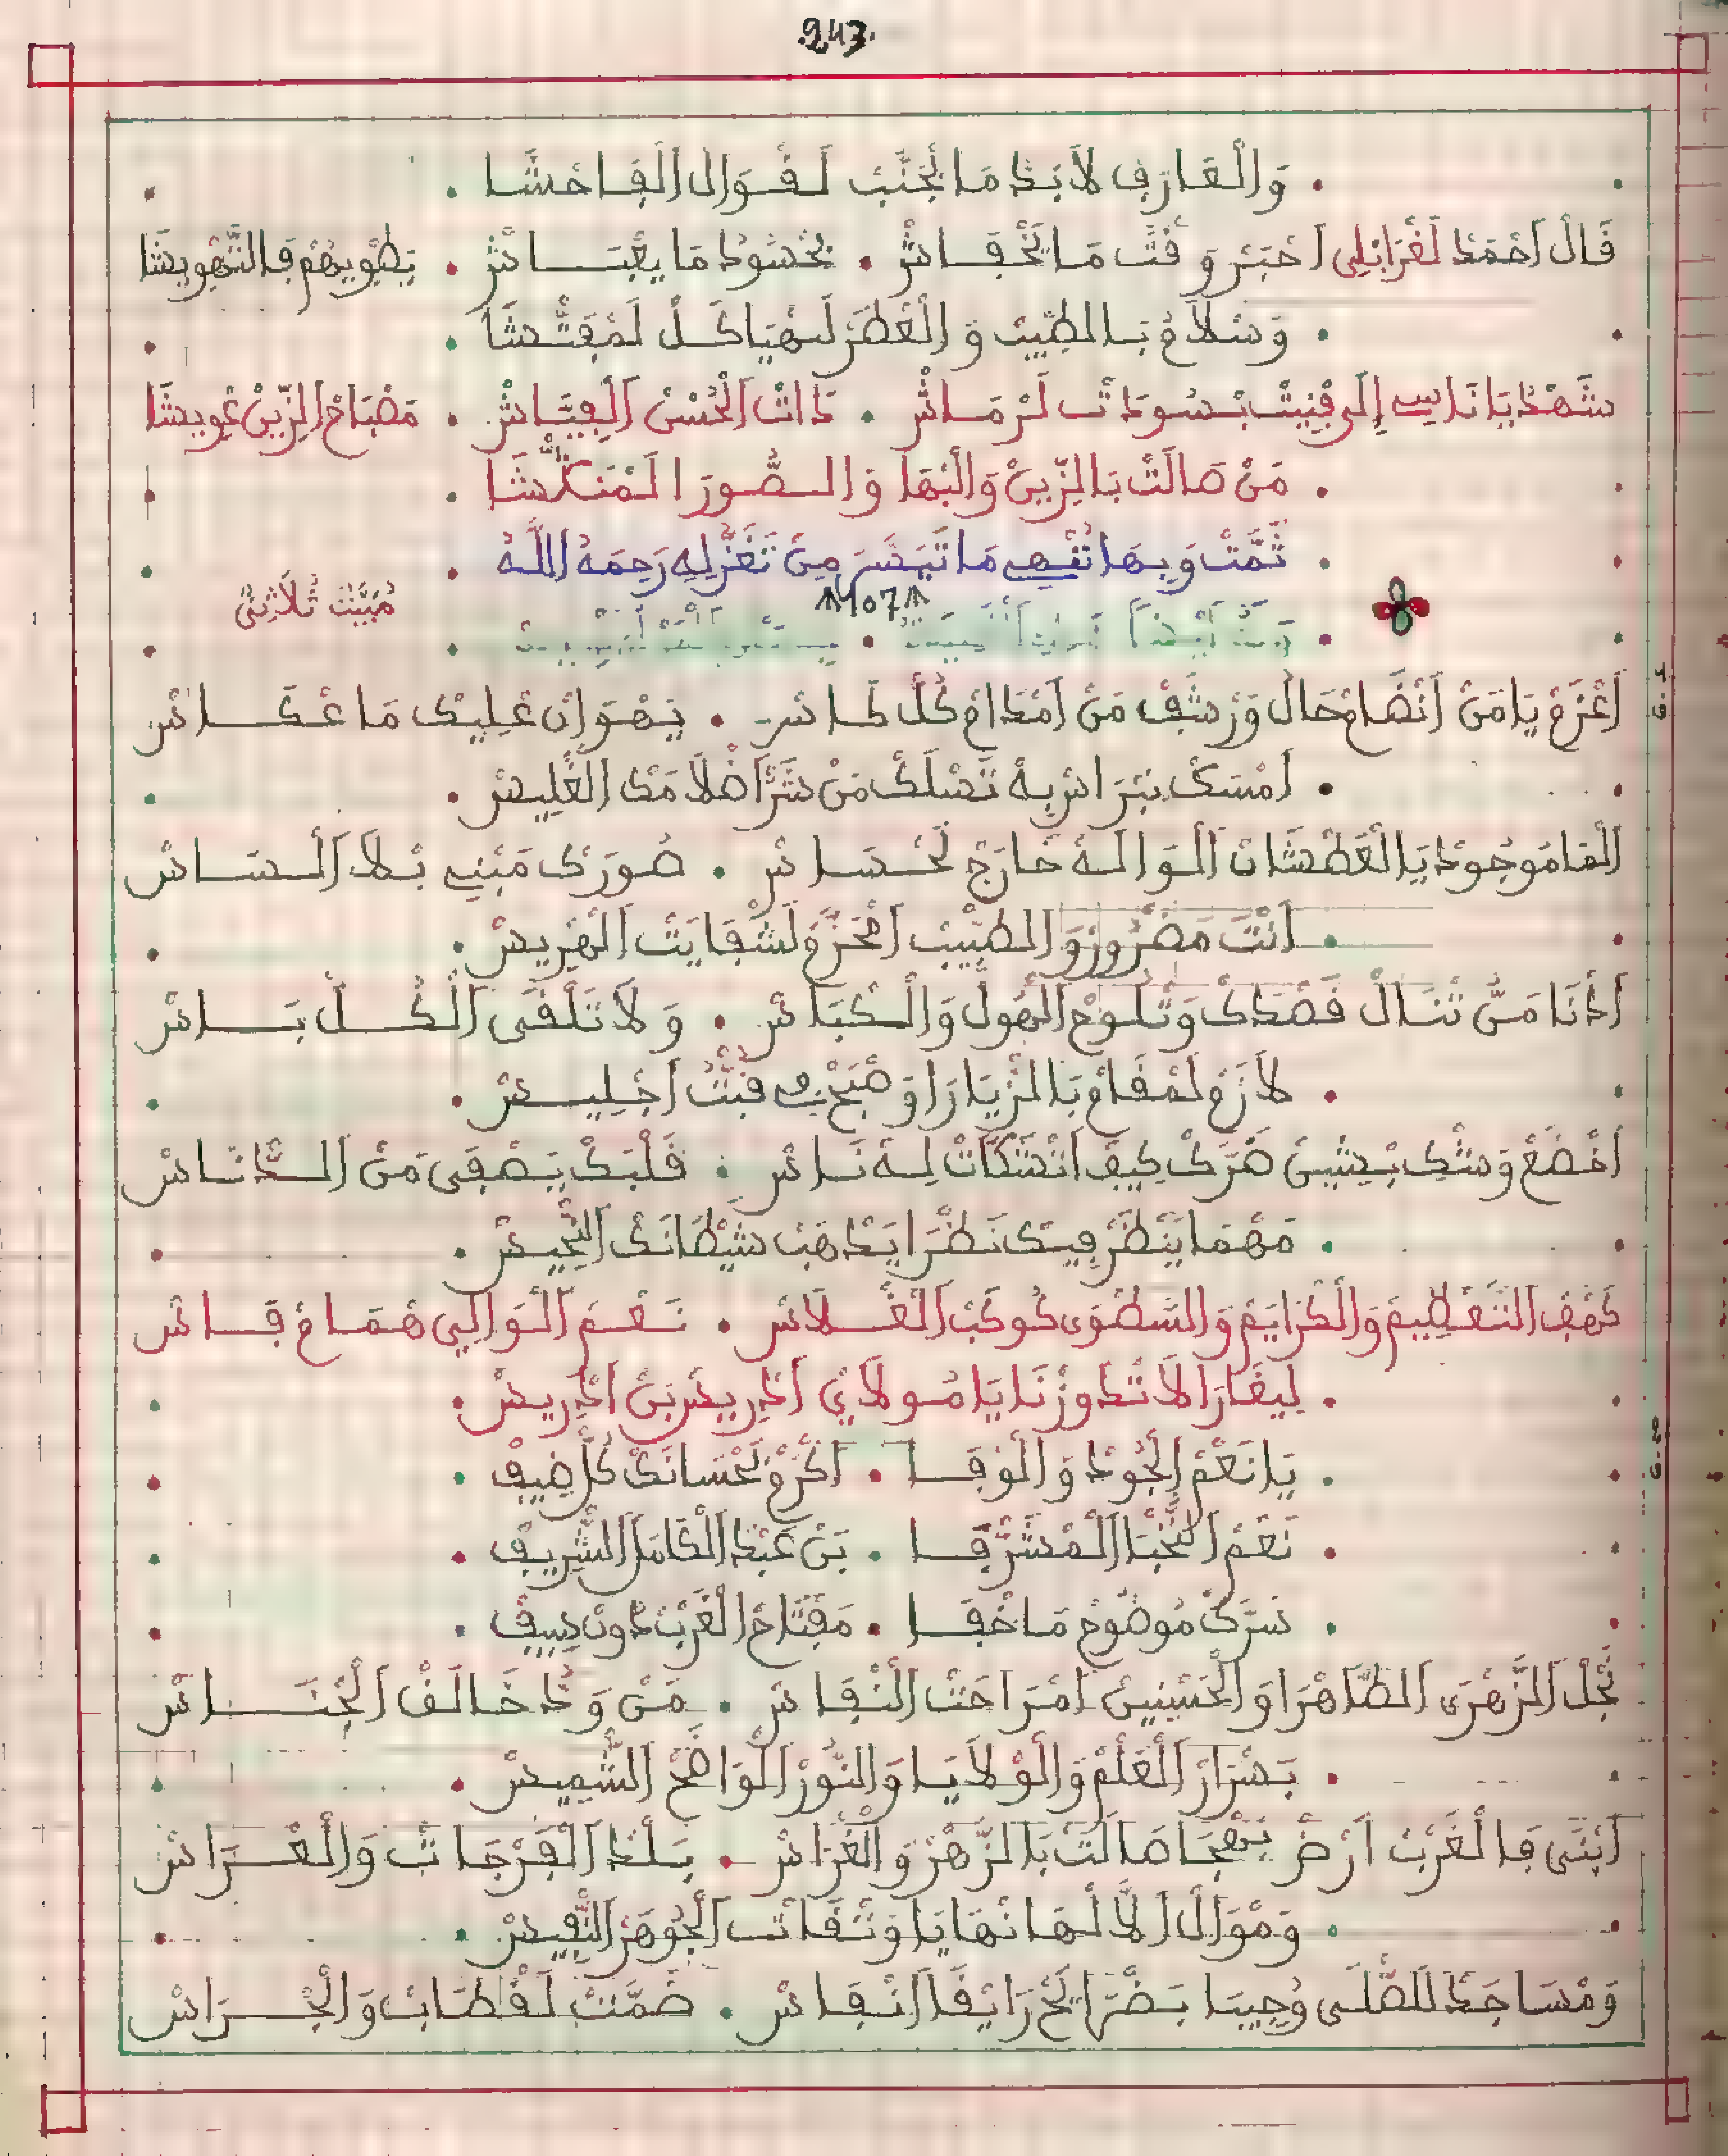 .247.
وَالْعَارَفِ لاَبَدْ مَا يْجَنَّبْ لَقْوَالْ اَلْفَاحْشَا
قَالْ اَحْمَدْ لَغْرَابْلِي اَحْبَرْ وَقْتْ مَا يَخْفَاشْ . يَحْسُودْ مَا يعْبَاشْ . يَطْوِيهُمْ فَالتَّهْوِيشَا
وَسْلاَمْ بَالطِّيبْ وَالْعَطْرْ لَنْهَيَا كَلّْ لَمْفَتّْشَا
شَهْدْ يَا نَاسِي إِلَى فْنِيتْ بْسُودَاتْ لَرْمَاشْ . ذَاتْ اَلْحُسْنْ اَلْفِيَّاشْ . مَصْبَاحْ اَلزِّينْ عْوِيشَا
مَنْ صَالَتْ بَالزِّينْ وَالْبْهَا وَالصُّورَا لَمْنَكّْشَا
تَمَّتْ وَبِهَا انْتَهى مَا تَيَسَّرَ مِنْ تَغَزُّلِهِ رَحِمَهُ اللَّهُ
107
مْبَيَّتْ ثُلَاثِي
اَعْزَمْ يَا مَنْ اَنْضَامْ حَالْ وَرْشَفْ مَنْ اَمْدَامْ كُلّْ كَاسْ . يَهْوَانْ عْلِيكْ مَا عْكَاسْ
اَمْسَكْ نَبْرَاسْ بِهْ تَسْلَكْ مَنْ شَرّْ اَظْلاَمَكْ اَلْغْلِيسْ
اَلْمَا مَوجُودْ يَا الْعَطْشَانْ اَلْوَالَهْ خَارَجْ لَحْسَاسْ . صُورَكْ مَبْنِي بْلاَ اَلْسَاسْ
اَنْتَ مَضْرُورْ وَالطْبِيبْ اَمْحَزَّمْ لَشْفَايَتْ اَلْهْرِيسْ
اَدْنَا مَنُّ تْنَالْ قَصْدَكْ وَتْلُوحْ اَلْهُولْ وَالْكْبَاسْ . وَلاَ تَلْقَى اَلْكُلّْ بَاسْ
لاَزَمْ لَمْقَامْ بَالزْيَارَا وَصْبَحْ فِي قُبّْتُ اَجْلِيسْ
اَخْضَعْ وَشْكِ بْشِينْ ضَرَّكْ كِيفْ اَتْشَكَاتْ لِهْ نَاسْ . قَلْبَكْ يَصْفَى مَنْ الدّْنَاسْ
مَهْمَا يَنْظَرْ فِيكْ نَظْرَا يَذْهَبْ شَيْطَانَكْ اَلنّْحِيسْ
كَهْفْ اَلتَّعْظِيمْ وَالْكْرَايَمْ وَالسَّطْوَى كُوكَبْ اَلْغْلاَسْ . نَعْمَ اَلْوَالِي هْمَامْ فَاسْ
لِيغَارَا لاَ تْدَوزْنَا يَا مُولاَيْ اَدْرِيسْ بَنْ اَدْرِيسْ
يَا نَعْمْ اَلْجُودْ وَالْوْفَا . اَكْرَمْ لَحْسَانَكْ كُلّْ ضِيفْ
نَعْمْ اَلنُّخْبَا اَلْمْشَرّْفَا . بَنْ عَبْدْ اَلْكَامَلْ اَلشّْرِيفْ
سَرَّكْ مُوضُوحْ مَا خْفَا . مَفْتَاحْ اَلْغَرْبْ دُونْ سِيفْ
نَجْلْ اَلزَّهْرَى اَلطَّاهْرَا وَالْحَسْنِينْ اَمْرَاحَتْ اَلنّْفَاسْ . مَنْ وَدّْ خَالَفْ اَلْجْنَاسْ
بَسْرَارْ اَلْعَلْمْ وَالْوْلاَيَا وَالنُّورْ اَلْوَاضَحْ اَلشّْمِيسْ
اَبْنَى فَالْغَرْبْ اَرْضْ بَهْجَا صَالَتْ بَالزَّهْرْ وَالْغْرَاسْ . بَلْدْ اَلْفَرْجَاتْ وَالْعْرَاسْ
وَمْوَالْ اَلاَّ لْهَا نْهَايَا وَتْقَاتْ اَلْجُوهَرْ اَلنّْفِيسْ
وَمْسَاجَدْ لَلصّْلَى وُجِيبَا بَضْرَايَحْ رَايْقَا اَنْقَاسْ . ضَمَّتْ لَقْطَابْ وَالْجْرَاسْ